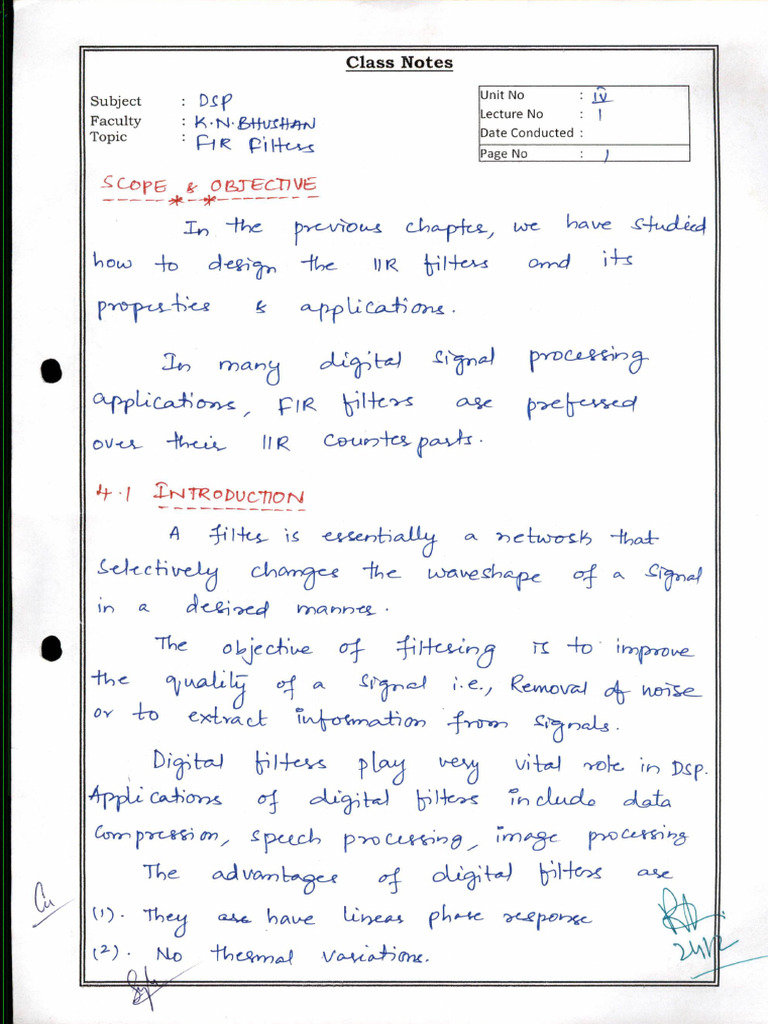 Class Notes
Subject : DSP
Faculty : K.N.BHUSHAN
Topic : FIR Filters
Unit No : IV
Lecture No : 1
Date Conducted :
Page No : 1
SCOPE & OBJECTIVE
In the previous chapter, we have studied
how to design the IIR filters and its
properties & applications.
In many digital signal processing
applications, FIR filters are preferred
over their IIR counterparts.
4.1 INTRODUCTION
A filter is essentially a network that
selectively changes the waveshape of a signal
in a desired manner.
The objective of filtering is to improve
the quality of a signal i.e., Removal of noise
or to extract information from signals.
Digital filters play very vital role in DSP.
Applications of digital filters include data
compression, speech processing, image processing
The advantages of digital filters are
(1). They are have linear phase response
(2). No thermal variations.
24/12